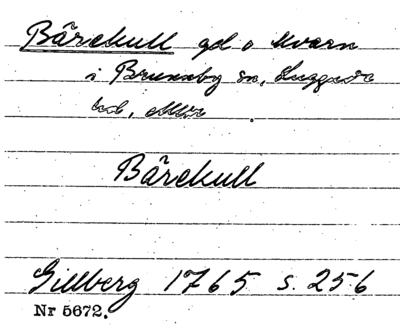 Bärekull gd o kvarn
i Brunnby sn, Luggude
hd, Mlm.
Bärekull
Gillberg 1765 s. 256
Nr 5672.